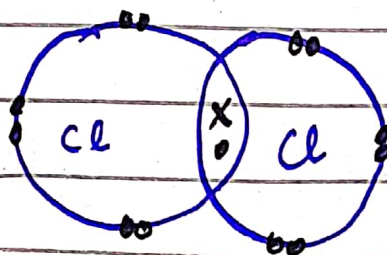 Cl x Cl